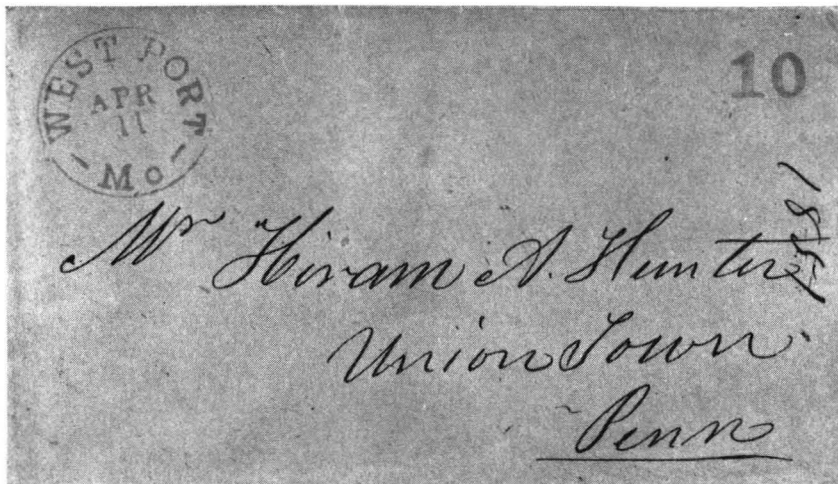 WEST PORT
APR
11
Mo
10
Mr Hiram A. Hunter
Union Town
Penn
1851